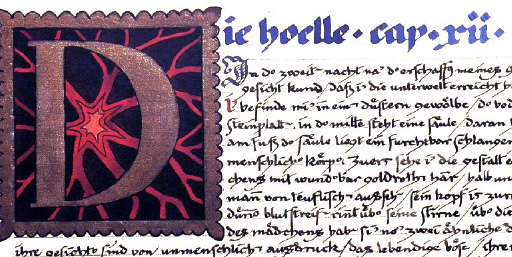 Die hoelle · cap · xii ·
In d zweit nacht na d erschaffg meines g
gesicht kund, daſʒ i die unterwelt erreicht h
befinde mi in ein düstern gewölbe, bod
steinplatt · in d mitte steht eine säule, daran
am fuß d säule liegt ein furchtbar schlangen
menschlich körp · zuerst sehe i die gestalt e
chens mit wundbar goldroth har, halb un
man von teuflisch ausseh · sein kopf ist zur
dünn blutstreif rinnt üb seine stirne, üb die
des mädchens hab si no zwei ähnliche d
ihre gesicht sind von unmenschlich ausdruck / das lebendige böse, ihre